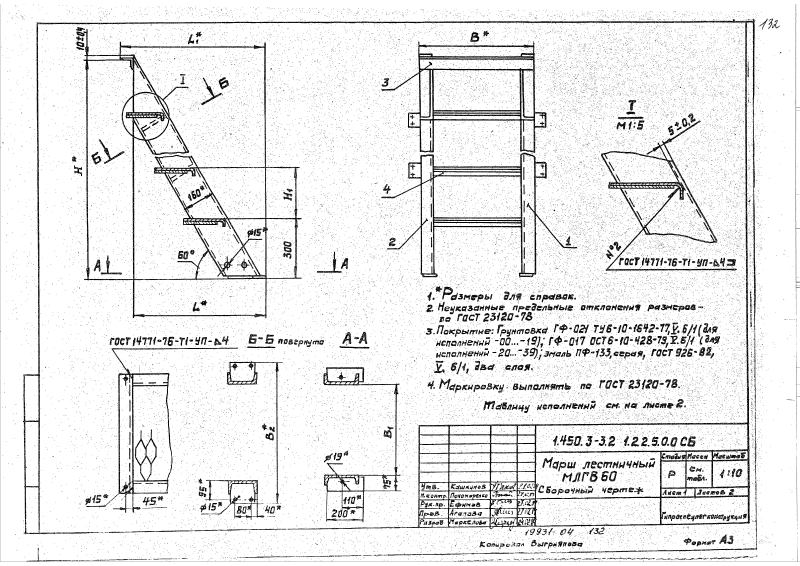 132
10±0,4
L₁*
I
Б
Б
H*
160*
H₁
ø15*
300
60°
А
А
L*
B*
3
4
2
1
I
М1:5
5±0,2
№2
ГОСТ 14771-76-Т1-УП-△4
1.*Размеры для справок.
2. Неуказанные предельные отклонения размеров-
по ГОСТ 23120-78
3. Покрытие: Грунтовка ГФ-021 ТУ6-10-1642-77, V. б/1 (для
исполнений -00...-19); ГФ-017 ОСТ6-10-428-79, V. б/1 (для
исполнений -20...-39); эмаль ПФ-133, серая, ГОСТ 926-82,
V. б/1, два слоя.
4. Маркировку выполнять по ГОСТ 23120-78.
Таблицу исполнений см. на листе 2.
ГОСТ 14771-76-Т1-УП-△4
Б-Б повернута
А-А
B₂*
B₁
ø19*
ø15*
45*
95*
ø15*
80*
40*
75*
110*
200*
1.450.3-3.2 1.2.2.5.0.0 СБ
Марш лестничный
МЛГВ 60
Сборочный чертеж
Стадия Масса Масштаб
Р см. табл. 1:10
Лист 1 Листов 2
Гипроспецлегконструкция
Утв. Кашкинов
Н.контр. Пономаренко
Рук.пр. Ефимов
Пров. Агапова
Разраб. Маркелова
19931-04 132
Копировал Выгринова
Формат А3